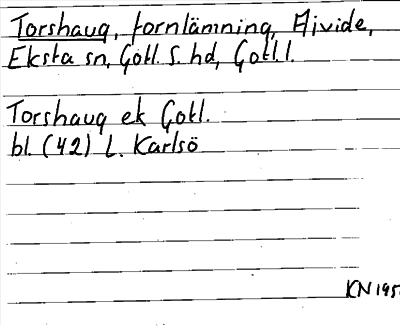 Torshaug, fornlämning, Ajvide,
Eksta sn, Gotl. S. hd, Gotl. l.
Torshaug ek Gotl.
bl. (42) L. Karlsö
KN 195